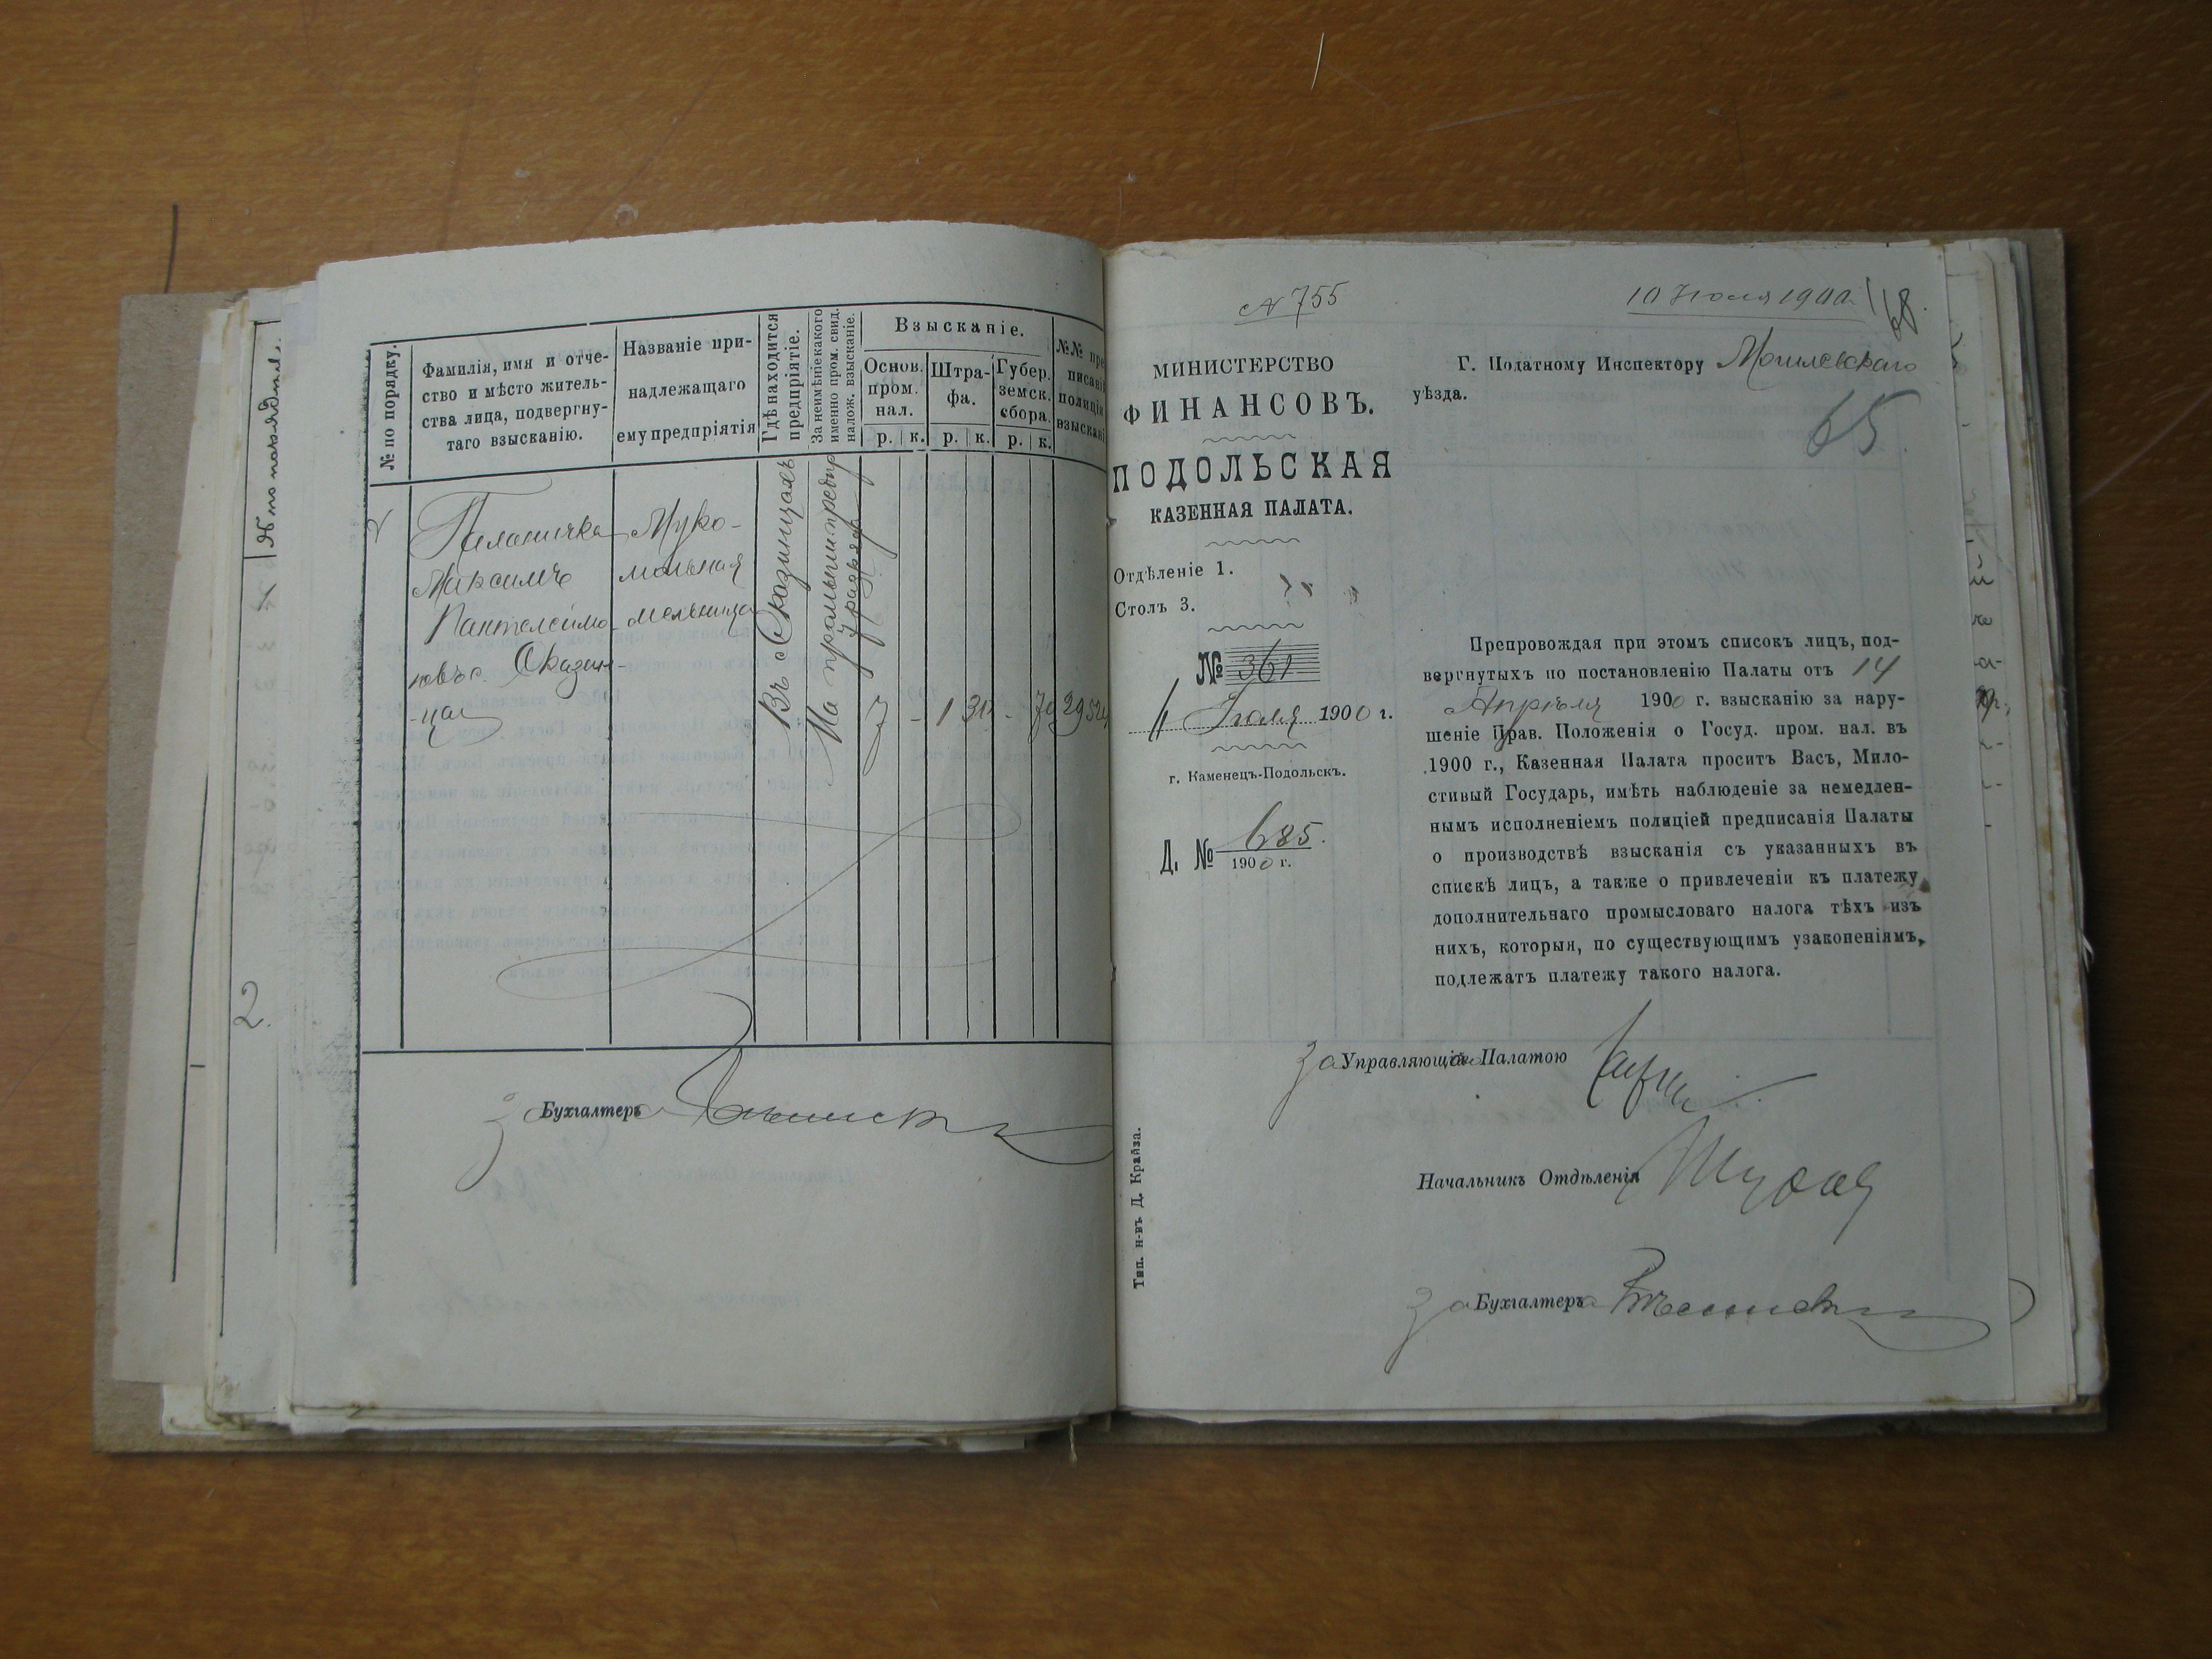 № по порядку.
Фамилія, имя и отче-
ство и мѣсто житель-
ства лица, подвергну-
таго взысканію.
Названіе при-
надлежащаго
ему предпріятія
Гдѣ находится
предпріятіе.
За неимѣніе какого
именно пром. свид.
налож. взысканіе.
Взысканіе.
Основ.
пром.
нал.
р. к.
Штра-
фа.
р. к.
Губер.
земск.
сбора.
р. к.
№№ пре
писані
полиціи
взыскані
Максимъ
Пантелеймо-
новъ с. Сказин-
ца
Муко-
мольная
мельница
Въ с. Сказинцахъ
На промыш. предпр.
разряда
7 -
- 70
2.
За Бухгалтера
N 755
10 Іюля 1900
68.
МИНИСТЕРСТВО
ФИНАНСОВЪ.
ПОДОЛЬСКАЯ
КАЗЕННАЯ ПАЛАТА.
Отдѣленіе 1.
Столъ 3.
№ 361
Іюля 1900 г.
г. Каменецъ-Подольскъ.
Д. № 685.
1900 г.
Г. Податному Инспектору Могилевскаго
уѣзда.
65
Препровождая при этомъ списокъ лицъ, под-
вергнутыхъ по постановленію Палаты отъ 14
Апрѣля 1900 г. взысканію за нару-
шеніе Прав. Положенія о Госуд. пром. нал. въ
1900 г., Казенная Палата проситъ Васъ, Мило-
стивый Государь, имѣть наблюденіе за немедлен-
нымъ исполненіемъ полиціей предписанія Палаты
о производствѣ взысканія съ указанныхъ въ
спискѣ лицъ, а также о привлеченіи къ платежу
дополнительнаго промысловаго налога тѣхъ изъ
нихъ, которыя, по существующимъ узаконеніямъ,
подлежатъ платежу такого налога.
За Управляющій Палатою
Начальникъ Отдѣленія
За Бухгалтера
Тип. н-въ Д. Крайза.